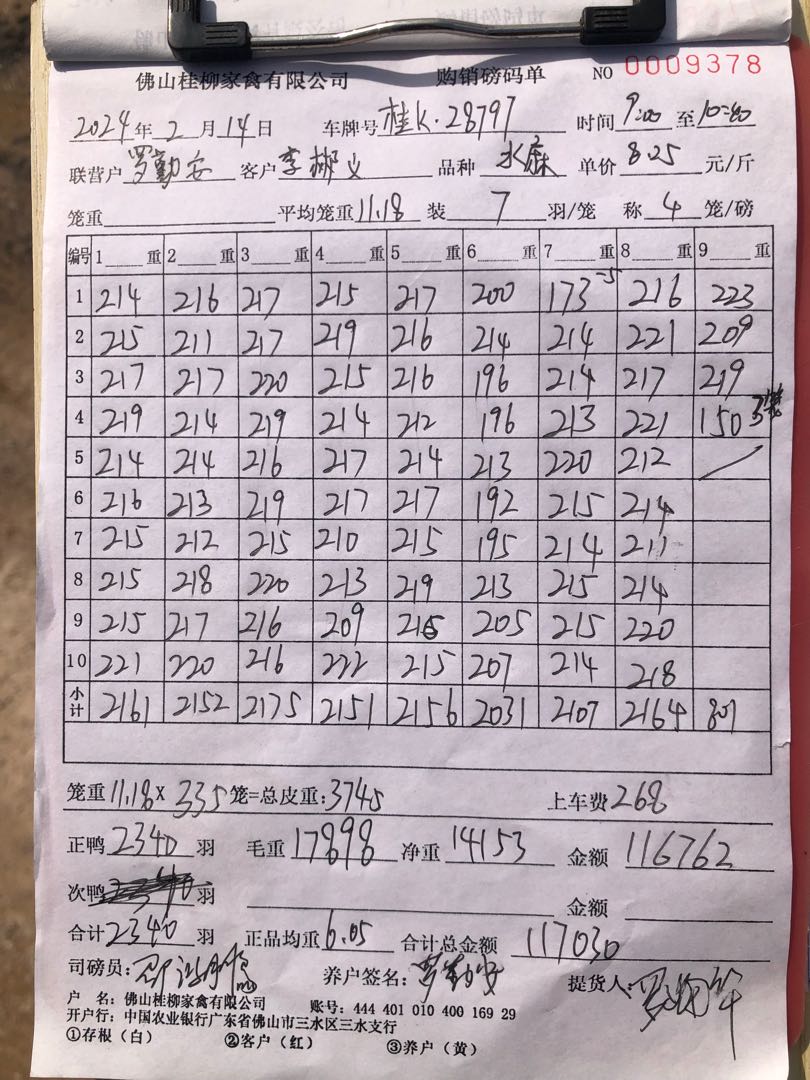 佛山桂柳家禽有限公司 购销磅码单 NO 0009378
2024年2月14日 车牌号桂K·28797 时间9:00至10:40
联营户罗勤安 客户李郴义 品种水麻 单价8.25元/斤
笼重 平均笼重11.18 装7羽/笼 称4笼/磅
编号 1重 2重 3重 4重 5重 6重 7重 8重 9重
1 214 216 217 215 217 200 173-5 216 223
2 215 211 217 219 216 214 214 221 209
3 217 217 220 215 216 196 214 217 219
4 219 214 219 214 212 196 213 221 150 3笼
5 214 214 216 217 214 213 220 212
6 216 213 219 217 217 192 215 214
7 215 212 215 210 215 195 214 211
8 215 218 220 213 219 213 215 214
9 215 217 216 209 215 205 215 220
10 221 220 216 222 215 207 214 218
小计 2161 2152 2175 2151 2156 2031 2107 2164 801
笼重11.18×335笼=总皮重:3745 上车费268
正鸭2340羽 毛重17898 净重14153 金额116762
次鸭 羽 金额
合计2340羽 正品均重6.05 合计总金额117030
司磅员: 养户签名:罗勤安 提货人:
户 名:佛山桂柳家禽有限公司 账号:444 401 010 400 169 29
开户行:中国农业银行广东省佛山市三水区三水支行
①存根(白) ②客户(红) ③养户(黄)